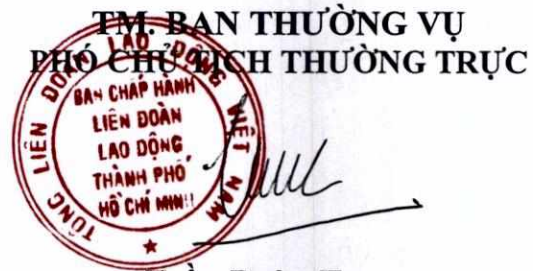 TM. BAN THƯỜNG VỤ
PHÓ CHỦ TỊCH THƯỜNG TRỰC
TỔNG LIÊN ĐOÀN LAO ĐỘNG VIỆT NAM
BAN CHẤP HÀNH
LIÊN ĐOÀN
LAO ĐỘNG
THÀNH PHỐ
HỒ CHÍ MINH